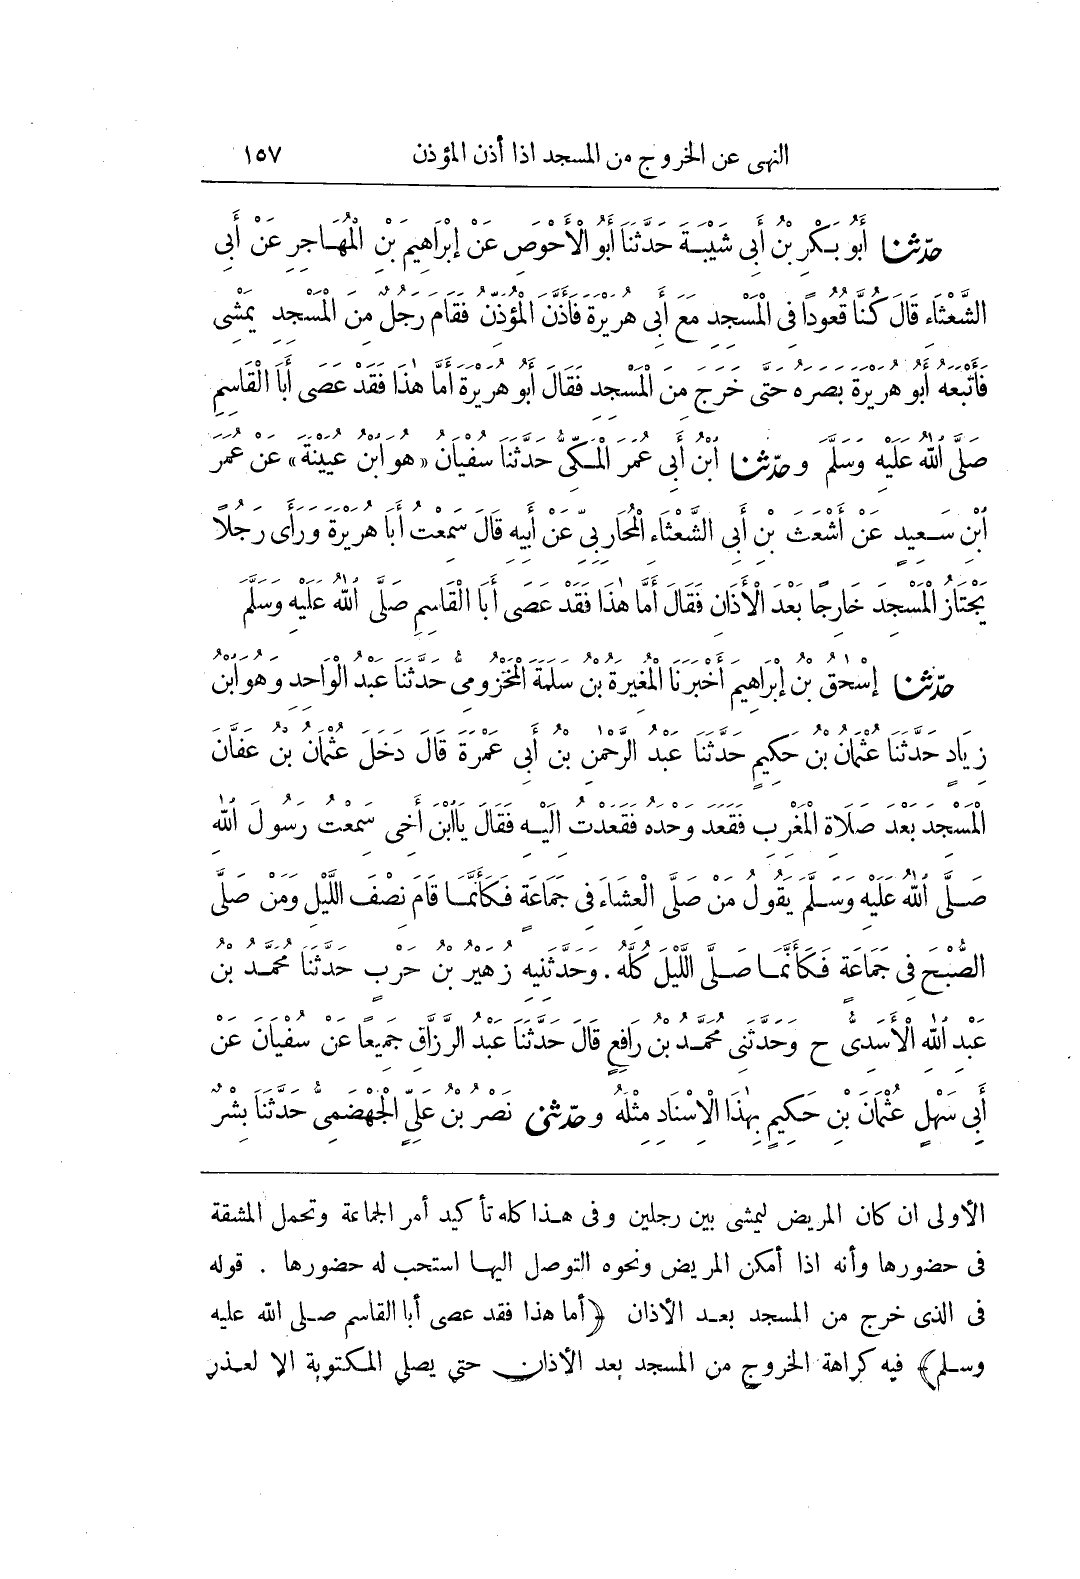 النهى عن الخروج من المسجد اذا أذن المؤذن ١٥٧
حدّثنا أَبُو بَكْرِ بْنُ أَبِى شَيْبَةَ حَدَّثَنَا أَبُو الْأَحْوَصِ عَنْ إِبْرَاهِيمَ بْنِ الْمُهَاجِرِ عَنْ أَبِى
الشَّعْثَاءِ قَالَ كُنَّا قُعُودًا فِى الْمَسْجِدِ مَعَ أَبِى هُرَيْرَةَ فَأَذَّنَ الْمُؤَذِّنُ فَقَامَ رَجُلٌ مِنَ الْمَسْجِدِ يَمْشِى
فَأَتْبَعَهُ أَبُو هُرَيْرَةَ بَصَرَهُ حَتَّى خَرَجَ مِنَ الْمَسْجِدِ فَقَالَ أَبُو هُرَيْرَةَ أَمَّا هٰذَا فَقَدْ عَصَى أَبَا الْقَاسِمِ
صَلَّى اللّٰهُ عَلَيْهِ وَسَلَّمَ وحدّثنا ابْنُ أَبِى عُمَرَ الْمَكِّىُّ حَدَّثَنَا سُفْيَانُ «هُوَ ابْنُ عُيَيْنَةَ» عَنْ عُمَرَ
ابْنِ سَعِيدٍ عَنْ أَشْعَثَ بْنِ أَبِى الشَّعْثَاءِ الْمُحَارِبِىِّ عَنْ أَبِيهِ قَالَ سَمِعْتُ أَبَا هُرَيْرَةَ وَرَأَى رَجُلًا
يَجْتَازُ الْمَسْجِدَ خَارِجًا بَعْدَ الْأَذَانِ فَقَالَ أَمَّا هٰذَا فَقَدْ عَصَى أَبَا الْقَاسِمِ صَلَّى اللّٰهُ عَلَيْهِ وَسَلَّمَ
حدّثنا إِسْحٰقُ بْنُ إِبْرَاهِيمَ أَخْبَرَنَا الْمُغِيرَةُ بْنُ سَلَمَةَ الْمَخْزُومِىُّ حَدَّثَنَا عَبْدُ الْوَاحِدِ وَهُوَ ابْنُ
زِيَادٍ حَدَّثَنَا عُثْمَانُ بْنُ حَكِيمٍ حَدَّثَنَا عَبْدُ الرَّحْمٰنِ بْنُ أَبِى عَمْرَةَ قَالَ دَخَلَ عُثْمَانُ بْنُ عَفَّانَ
الْمَسْجِدَ بَعْدَ صَلَاةِ الْمَغْرِبِ فَقَعَدَ وَحْدَهُ فَقَعَدْتُ إِلَيْهِ فَقَالَ يَا ابْنَ أَخِى سَمِعْتُ رَسُولَ اللّٰهِ
صَلَّى اللّٰهُ عَلَيْهِ وَسَلَّمَ يَقُولُ مَنْ صَلَّى الْعِشَاءَ فِى جَمَاعَةٍ فَكَأَنَّمَا قَامَ نِصْفَ اللَّيْلِ وَمَنْ صَلَّى
الصُّبْحَ فِى جَمَاعَةٍ فَكَأَنَّمَا صَلَّى اللَّيْلَ كُلَّهُ . وَحَدَّثَنِيهِ زُهَيْرُ بْنُ حَرْبٍ حَدَّثَنَا مُحَمَّدُ بْنُ
عَبْدِ اللّٰهِ الْأَسَدِىُّ ح وَحَدَّثَنِى مُحَمَّدُ بْنُ رَافِعٍ قَالَ حَدَّثَنَا عَبْدُ الرَّزَّاقِ جَمِيعًا عَنْ سُفْيَانَ عَنْ
أَبِى سَهْلٍ عُثْمَانَ بْنِ حَكِيمٍ بِهٰذَا الْإِسْنَادِ مِثْلَهُ وحدّثنى نَصْرُ بْنُ عَلِىٍّ الْجَهْضَمِىُّ حَدَّثَنَا بِشْرٌ
الأولى ان كان المريض ليمشى بين رجلين وفى هذا كله تأكيد أمر الجماعة وتحمل المشقة
فى حضورها وأنه اذا أمكن المريض ونحوه التوصل اليها استحب له حضورها . قوله
فى الذى خرج من المسجد بعد الأذان ﴿أما هذا فقد عصى أبا القاسم صلى الله عليه
وسلم﴾ فيه كراهة الخروج من المسجد بعد الأذان حتى يصلي المكتوبة الا لعذر